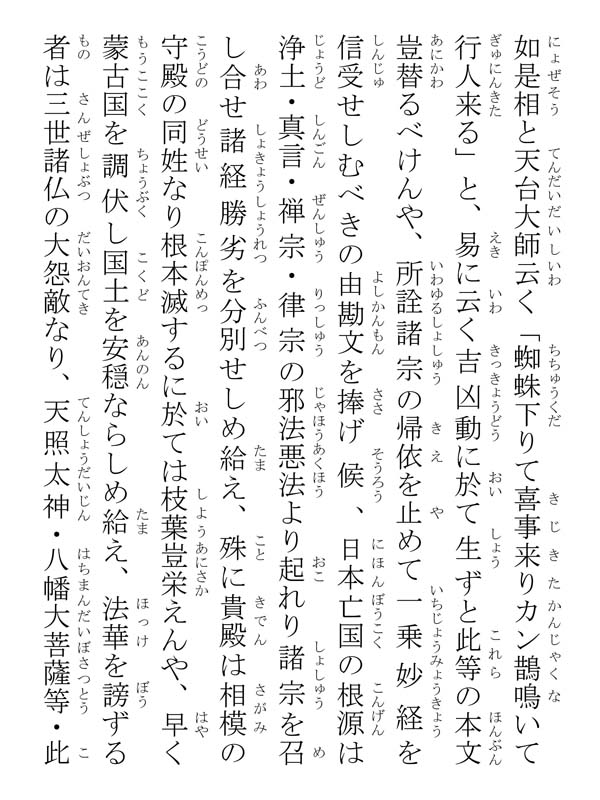 如是相と天台大師云く「蜘蛛下りて喜事来りカン鵲鳴いて
行人来る」と、易に云く吉凶動に於て生ずと此等の本文
豈替るべけんや、所詮諸宗の帰依を止めて一乗妙経を
信受せしむべきの由勘文を捧げ候、日本亡国の根源は
浄土・真言・禅宗・律宗の邪法悪法より起れり諸宗を召
し合せ諸経勝劣を分別せしめ給え、殊に貴殿は相模の
守殿の同姓なり根本滅するに於ては枝葉豈栄えんや、早く
蒙古国を調伏し国土を安穏ならしめ給え、法華を謗ずる
者は三世諸仏の大怨敵なり、天照太神・八幡大菩薩等・此